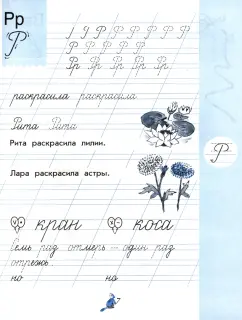 Рр
Р
1 1 Р Р Р Р Р Р
Р Р Р Р Р Р
Рр Рр Рр Рр Рр
раскрасила раскрасила
Рита Рита
Рита раскрасила лилии.
Р
Лара раскрасила астры.
кран коса
Семь раз отмерь – один раз
отрежь.
но но
7